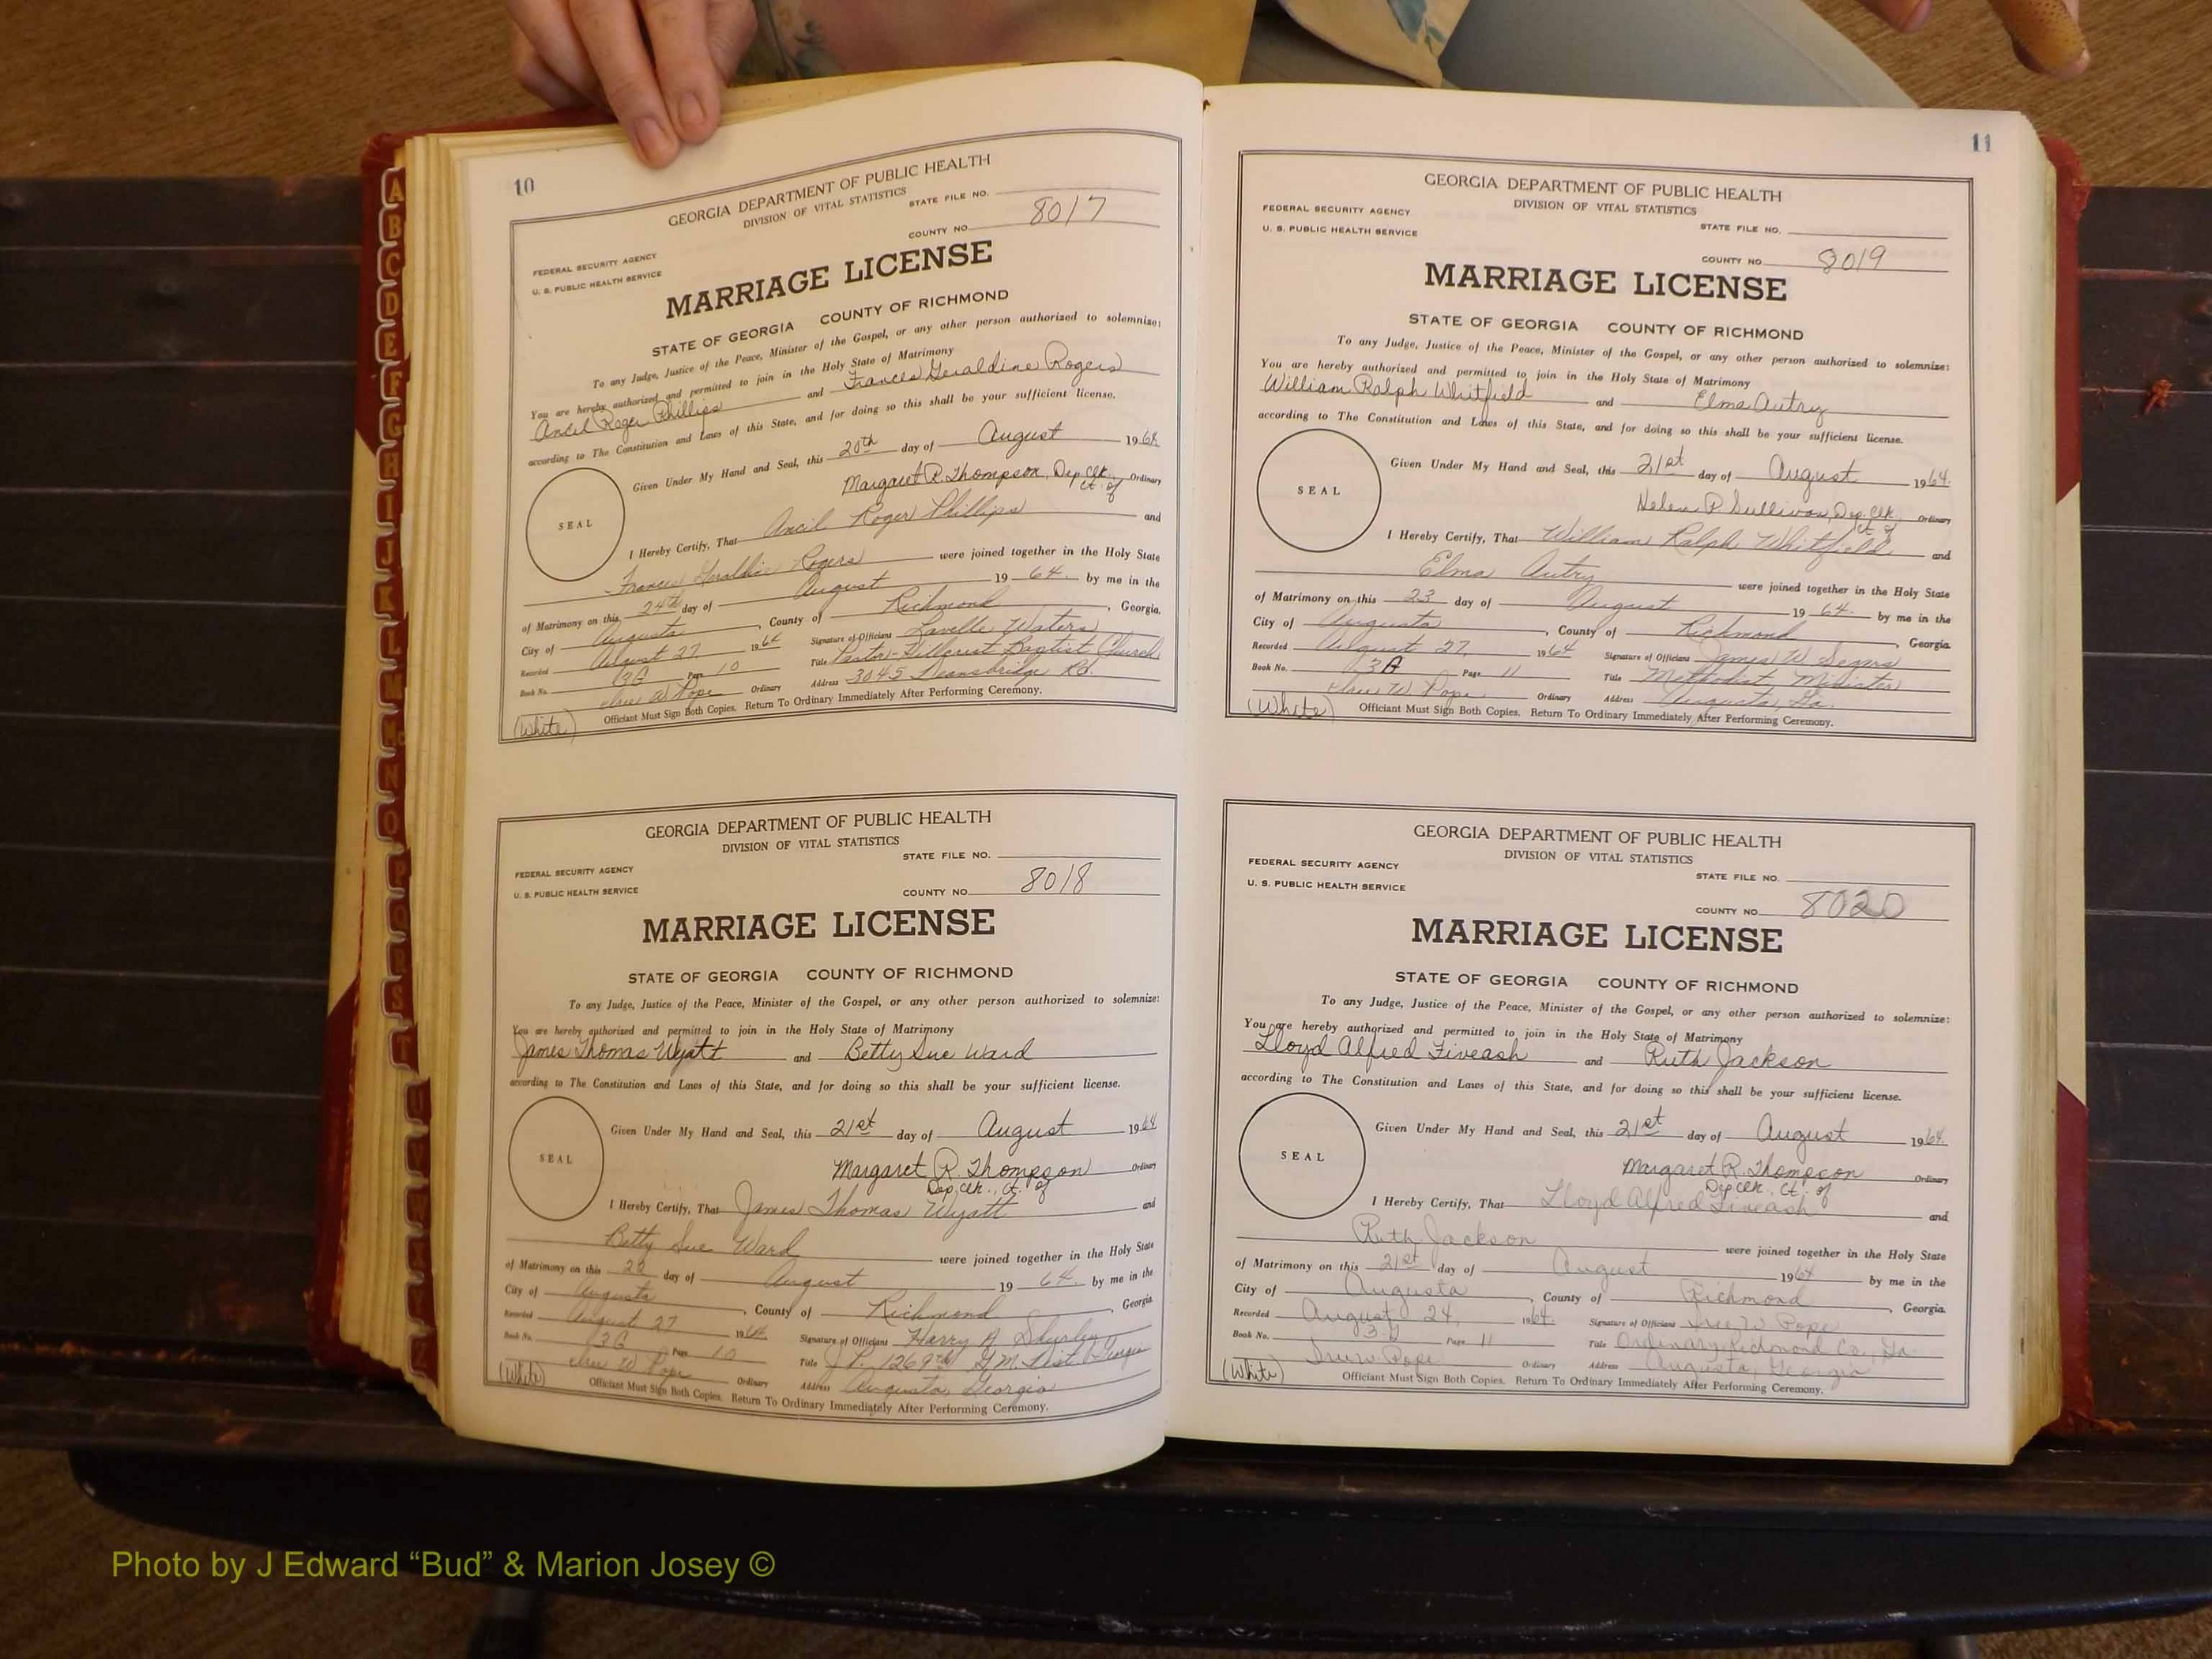 10
GEORGIA DEPARTMENT OF PUBLIC HEALTH
DIVISION OF VITAL STATISTICS
STATE FILE NO.
FEDERAL SECURITY AGENCY
U. S. PUBLIC HEALTH SERVICE
COUNTY NO. 8017
MARRIAGE LICENSE
STATE OF GEORGIA COUNTY OF RICHMOND
To any Judge, Justice of the Peace, Minister of the Gospel, or any other person authorized to solemnize:
You are hereby authorized and permitted to join in the Holy State of Matrimony
Ancil Roger Phillips and Frances Geraldine Rogers
according to The Constitution and Laws of this State, and for doing so this shall be your sufficient license.
Given Under My Hand and Seal, this 20th day of August 1964
SEAL
Margaret R. Thompson, Dep. Clk. Ordinary
Ct. of
I Hereby Certify, That Ancil Roger Phillips and
Frances Geraldine Rogers were joined together in the Holy State
of Matrimony on this 24th day of August 19 64 by me in the
City of Augusta, County of Richmond, Georgia.
Recorded August 27, 1964 Signature of Officiant Lavelle Waters
Book No. 3G Page 10 Title Pastor-Hillcrest Baptist Church
Ordinary Address 3045 Deansbridge Rd.
(White) Officiant Must Sign Both Copies. Return To Ordinary Immediately After Performing Ceremony.
GEORGIA DEPARTMENT OF PUBLIC HEALTH
DIVISION OF VITAL STATISTICS
STATE FILE NO.
FEDERAL SECURITY AGENCY
U. S. PUBLIC HEALTH SERVICE
COUNTY NO. 8018
MARRIAGE LICENSE
STATE OF GEORGIA COUNTY OF RICHMOND
To any Judge, Justice of the Peace, Minister of the Gospel, or any other person authorized to solemnize:
You are hereby authorized and permitted to join in the Holy State of Matrimony
James Thomas Wyatt and Betty Sue Ward
according to The Constitution and Laws of this State, and for doing so this shall be your sufficient license.
Given Under My Hand and Seal, this 21st day of August 1964
SEAL
Margaret R. Thompson Ordinary
Dep. Clk., Ct. of
I Hereby Certify, That James Thomas Wyatt and
Betty Sue Ward were joined together in the Holy State
of Matrimony on this day of August 19 64 by me in the
City of Augusta, County of Richmond, Georgia.
Recorded August 27 1964 Signature of Officiant Harry A.
Book No. 3G Page 10 Title J.P. 1269th G.M. Dist.
Ordinary Address Augusta, Georgia
(White) Officiant Must Sign Both Copies. Return To Ordinary Immediately After Performing Ceremony.
11
GEORGIA DEPARTMENT OF PUBLIC HEALTH
DIVISION OF VITAL STATISTICS
FEDERAL SECURITY AGENCY
U. S. PUBLIC HEALTH SERVICE
STATE FILE NO.
COUNTY NO. 8019
MARRIAGE LICENSE
STATE OF GEORGIA COUNTY OF RICHMOND
To any Judge, Justice of the Peace, Minister of the Gospel, or any other person authorized to solemnize:
You are hereby authorized and permitted to join in the Holy State of Matrimony
William Ralph Whitfield and Elma Autry
according to The Constitution and Laws of this State, and for doing so this shall be your sufficient license.
Given Under My Hand and Seal, this 21st day of August 1964.
SEAL
Helen P. Sullivan, Dep. Clk. Ordinary
Ct. of
I Hereby Certify, That William Ralph Whitfield and
Elma Autry were joined together in the Holy State
of Matrimony on this 23 day of August 19 64. by me in the
City of Augusta, County of Richmond, Georgia.
Recorded August 27, 1964 Signature of Officiant James W. Segars
Book No. Page 11 Title Methodist Minister
W. Pope Ordinary Address Augusta, Ga.
(White) Officiant Must Sign Both Copies. Return To Ordinary Immediately After Performing Ceremony.
GEORGIA DEPARTMENT OF PUBLIC HEALTH
DIVISION OF VITAL STATISTICS
FEDERAL SECURITY AGENCY
U. S. PUBLIC HEALTH SERVICE
STATE FILE NO.
COUNTY NO. 8020
MARRIAGE LICENSE
STATE OF GEORGIA COUNTY OF RICHMOND
To any Judge, Justice of the Peace, Minister of the Gospel, or any other person authorized to solemnize:
You are hereby authorized and permitted to join in the Holy State of Matrimony
Lloyd Alfred Fiveash and Ruth Jackson
according to The Constitution and Laws of this State, and for doing so this shall be your sufficient license.
Given Under My Hand and Seal, this 21st day of August 1964.
SEAL
Margaret R. Thompson Ordinary
Dep Clk., Ct. of
I Hereby Certify, That Lloyd Alfred Fiveash and
Ruth Jackson were joined together in the Holy State
of Matrimony on this 21st day of August 1964 by me in the
City of Augusta, County of Richmond, Georgia.
Recorded August 24, 1964. Signature of Officiant W. Pope
Book No. Page 11 Title Ordinary, Richmond Co., Ga.
W. Pope Ordinary Address Augusta, Georgia
(White) Officiant Must Sign Both Copies. Return To Ordinary Immediately After Performing Ceremony.
Photo by J Edward “Bud” & Marion Josey ©